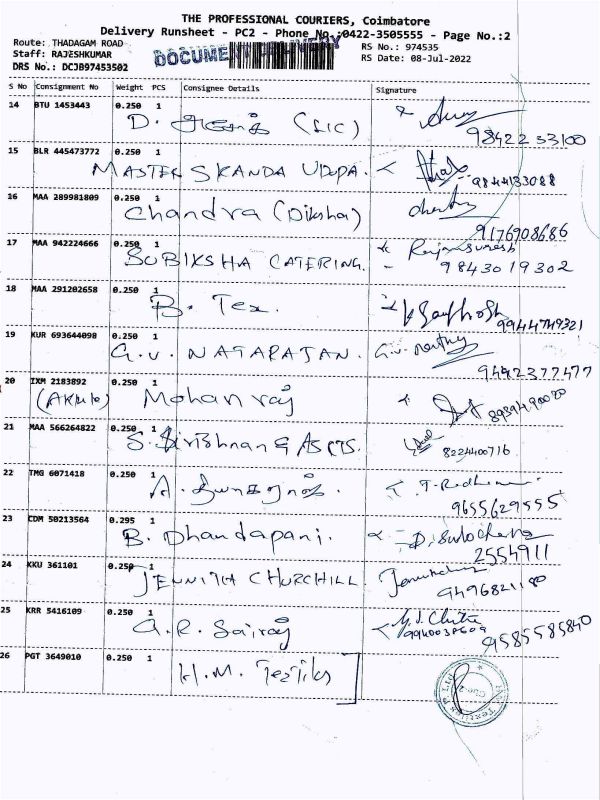 THE PROFESSIONAL COURIERS, Coimbatore
Delivery Runsheet - PC2 - Phone No.:0422-3505555 - Page No.:2
Route: THADAGAM ROAD
RS No.: 974535
Staff: RAJESHKUMAR
RS Date: 08-Jul-2022
DRS No.: DCJB97453502
S No Consignment No Weight PCS Consignee Details Signature
14 BTU 1453443 0.250 1
D. (LIC)
9842233100
15 BLR 445473772 0.250 1
MASTER SKANDA UDUPA.
9844133088
16 MAA 289981809 0.250 1
Chandra (Diksha)
9176908686
17 MAA 942224666 0.250 1
SUBIKSHA CATERING.
9843019302
18 MAA 291202658 0.250 1
B. Tex.
9944749321
19 KUR 693644098 0.250 1
G.V. NATARAJAN.
9442377477
20 IXM 2183892 0.250 1
Mohanraj
21 MAA 566264822 0.250 1
8224400716
22 TMG 6071418 0.250 1
9655629555
23 CDM 50213564 0.295 1
B. Dhandapani.
D. Sulochana
2554911
24 KKU 361101 0.250 1
JENNITH CHURCHILL
25 KRR 5416109 0.250 1
G.R. Sairaj
9585585840
26 PGT 3649010 0.250 1
H.M. Textiles